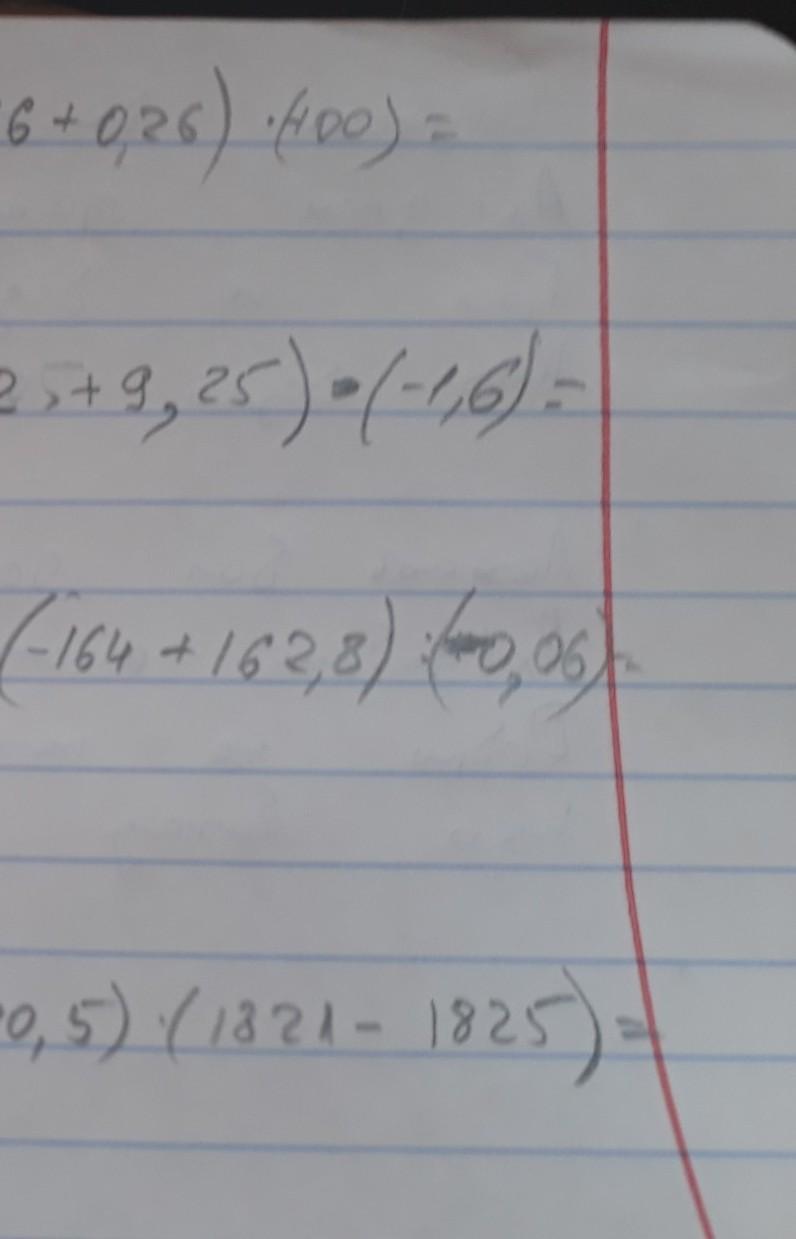 6 + 0,26) · (100) =
2, + 9,25) · (-1,6) =
(-164 + 162,8) : (-0,06) =
0,5) · (1821 - 1825) =